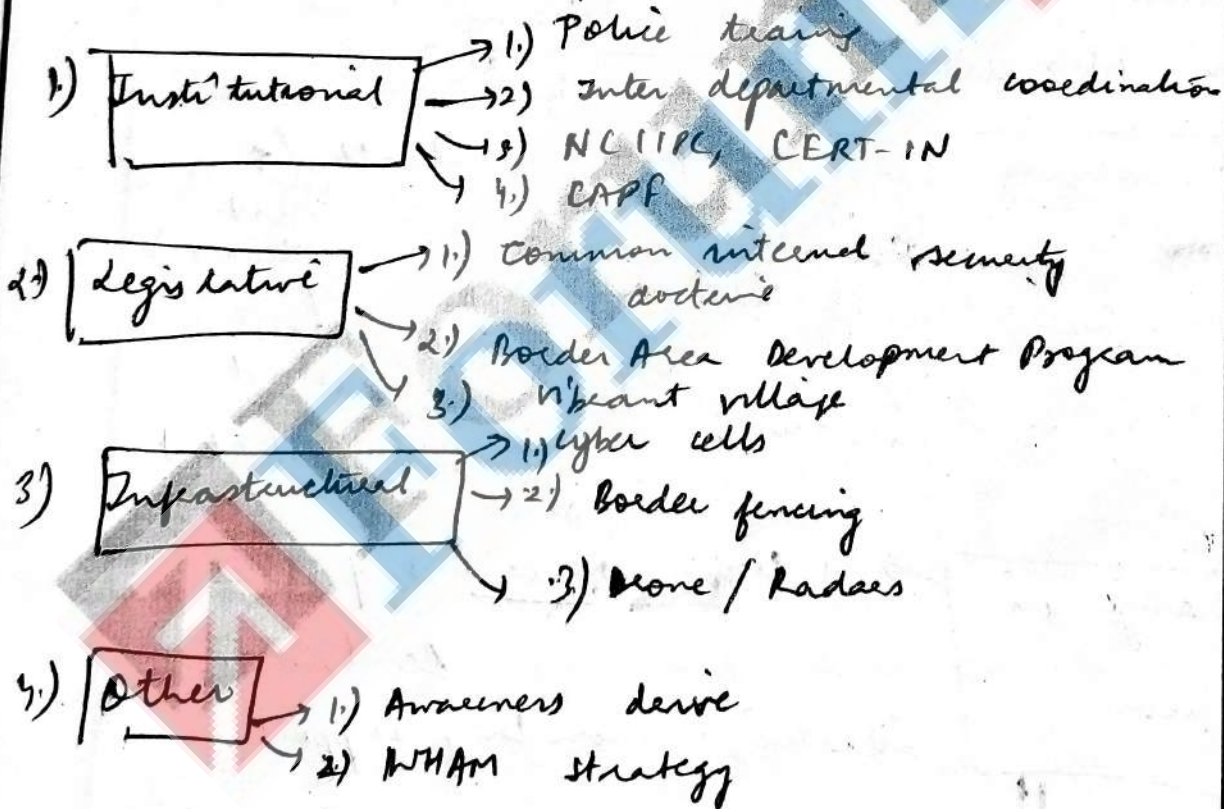 1.) Institutional
→ 1.) Police traing
→ 2) Inter departmental coordination
→ 3) NCIIPC, CERT-IN
→ 4.) CAPF
2.) Legislative
→ 1.) Common internal security
doctrine
→ 2.) Border Area Development Program
→ 3.) Vibrant village
3) Infrastructural
→ 1.) Cyber cells
→ 2) Border fencing
→ 3.) Drone / Radars
4.) Other
→ 1.) Awareness drive
→ 2) WHAM strategy
Forum